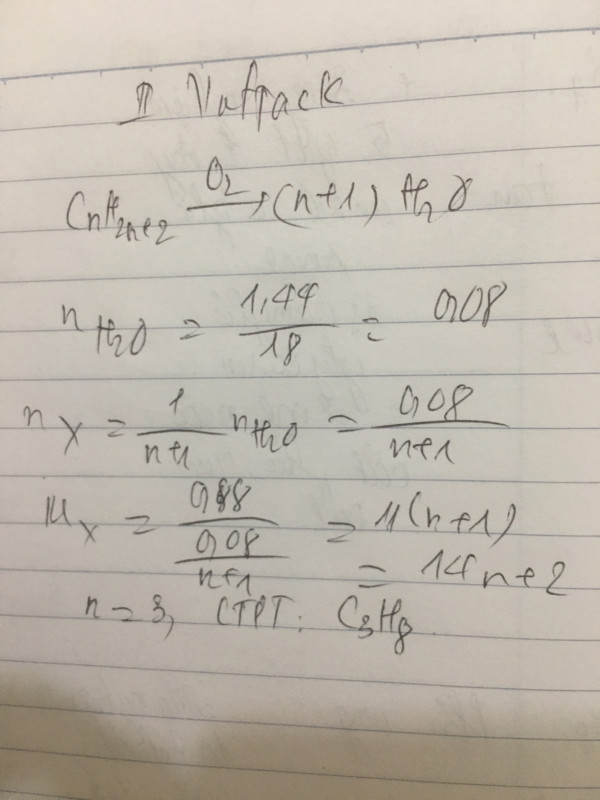 II
CnH2n+2 O2 → (n+1) H2O
nH2O = 1,44 / 18 = 0,08
nX = 1 / n+1 nH2O = 0,08 / n+1
MX = 0,88 / 0,08 / n+1 = 11(n+1)
= 14n+2
n = 3, CTPT: C3H8